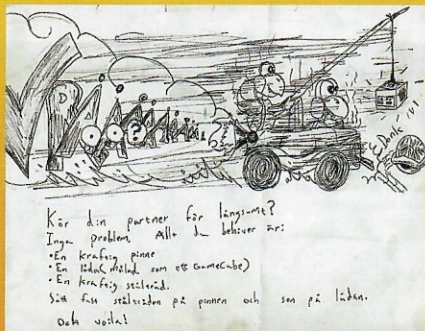 VROOMMMM
?
Dank
Kör din partner för långsamt?
Inga problem. Allt du behöver är:
• En kraftig pinne
• En låda målad som ett GameCube)
• En kraftig ståltråd.
Sätt fast ståltråden på pinnen och sen på lådan.
Och voila!